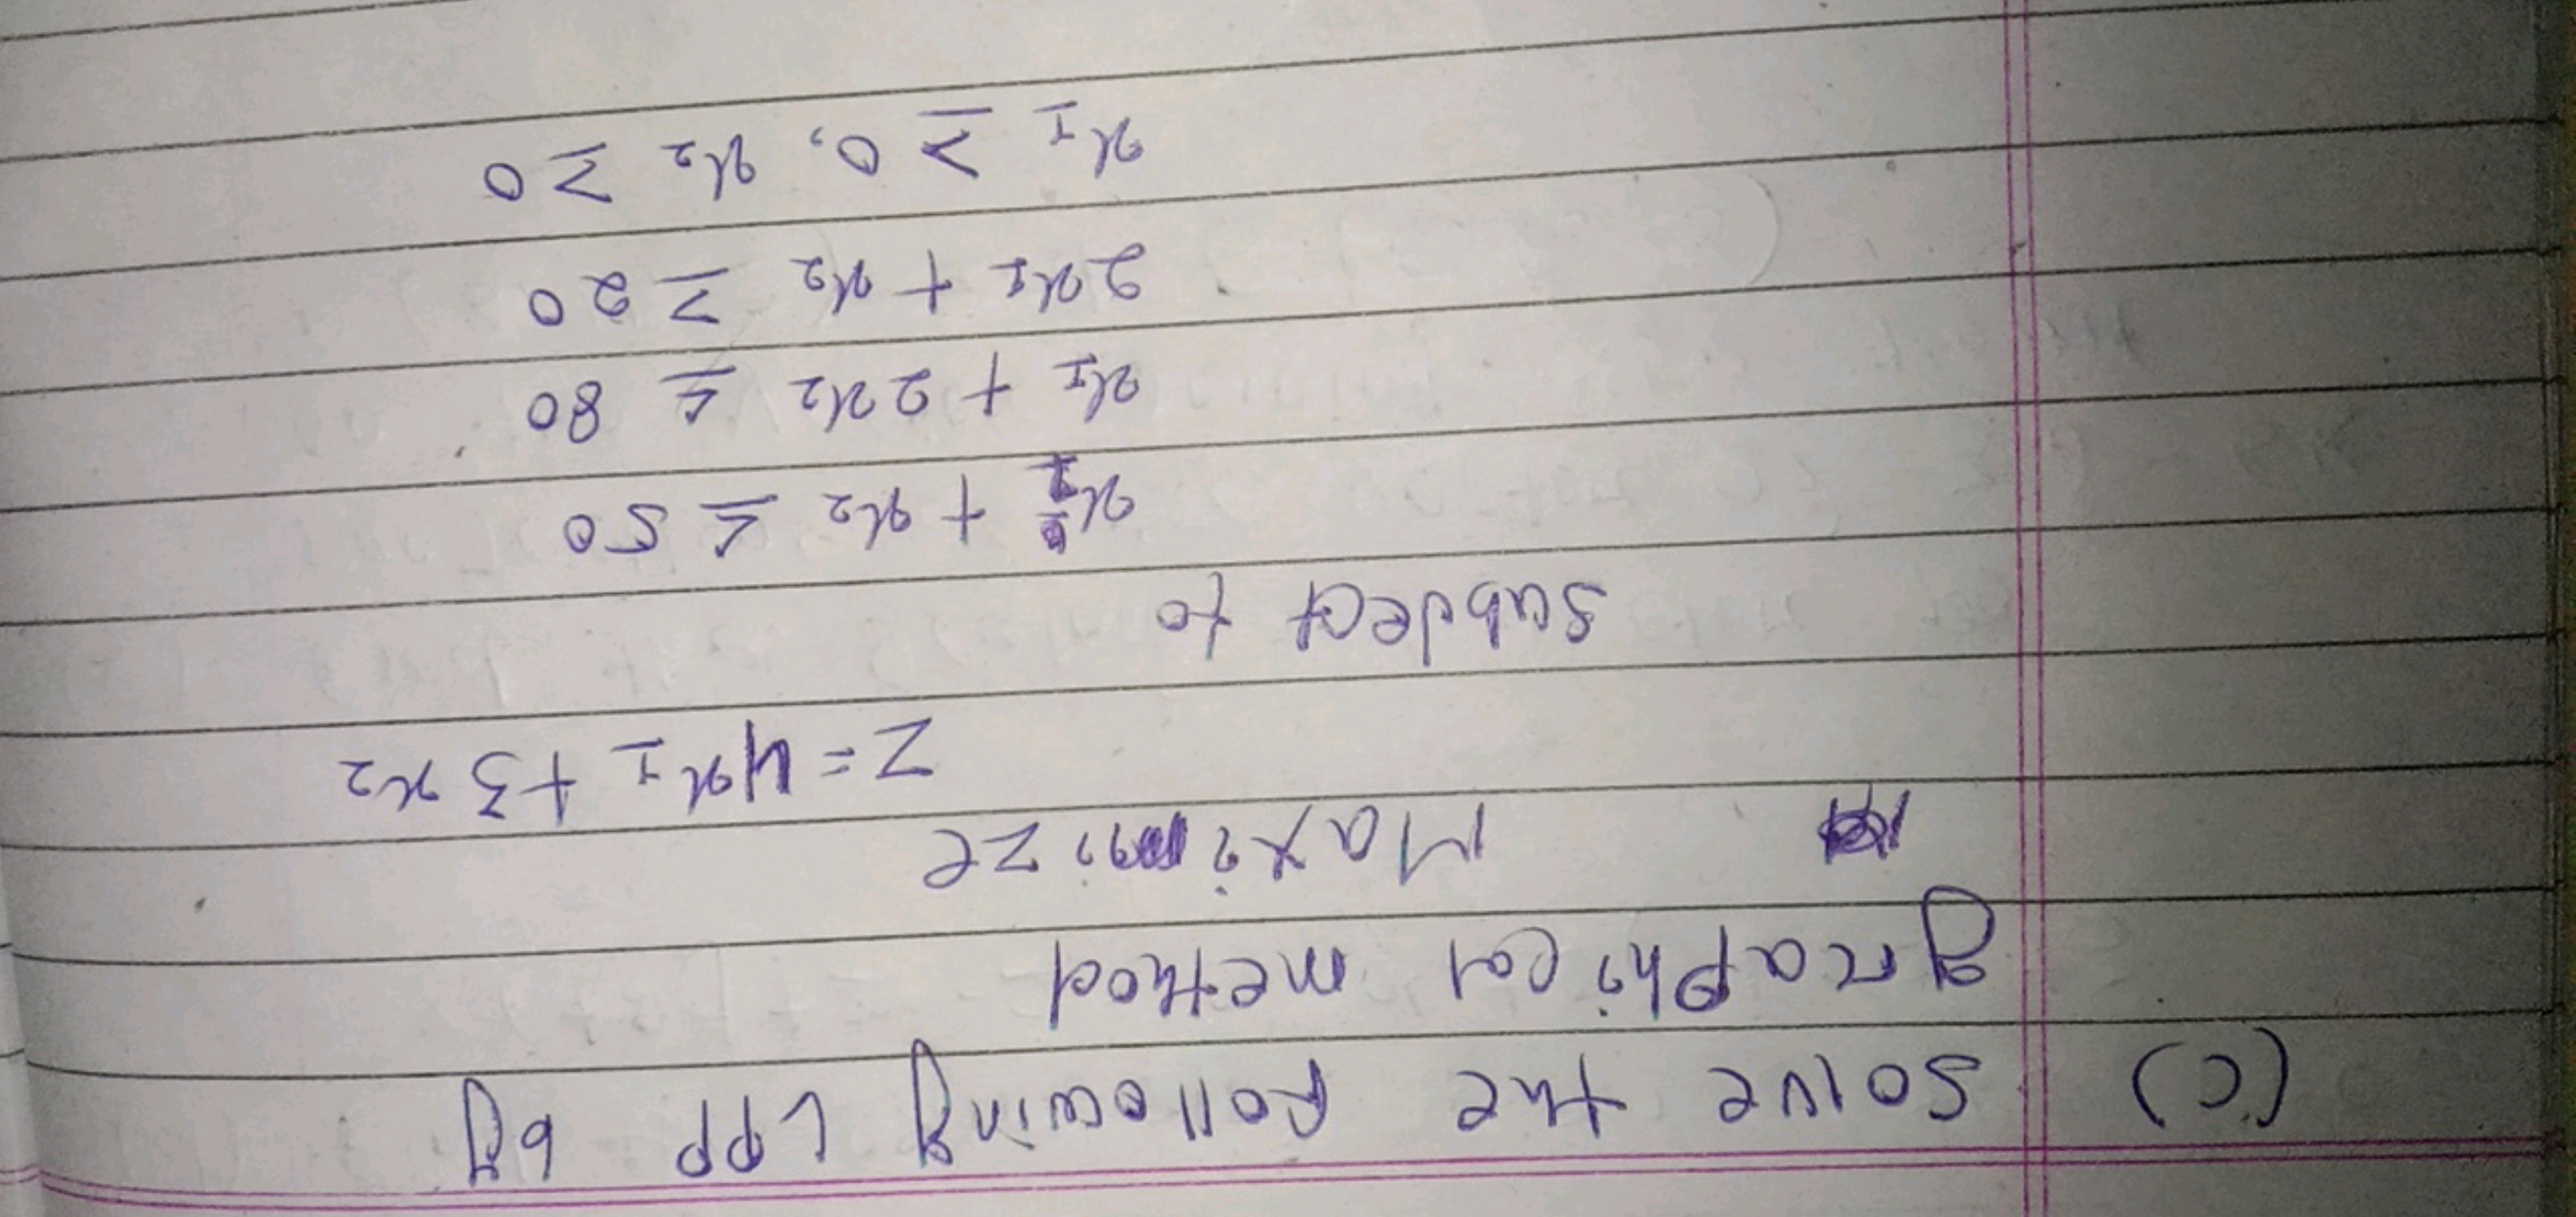 (c) solve the following LPP by
graphical method
Maximize
Z = 4x₁ + 3x₂
subject to
x₁ + x₂ ≤ 50
x₁ + 2x₂ ≤ 80
2x₁ + x₂ ≥ 20
x₁ ≥ 0, x₂ ≥ 0